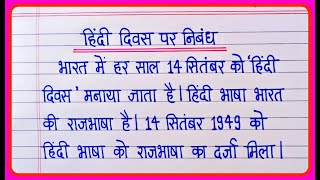 हिंदी दिवस पर निबंध
भारत में हर साल 14 सितंबर को 'हिंदी
दिवस' मनाया जाता है। हिंदी भाषा भारत
की राजभाषा है। 14 सितंबर 1949 को
हिंदी भाषा को राजभाषा का दर्जा मिला।